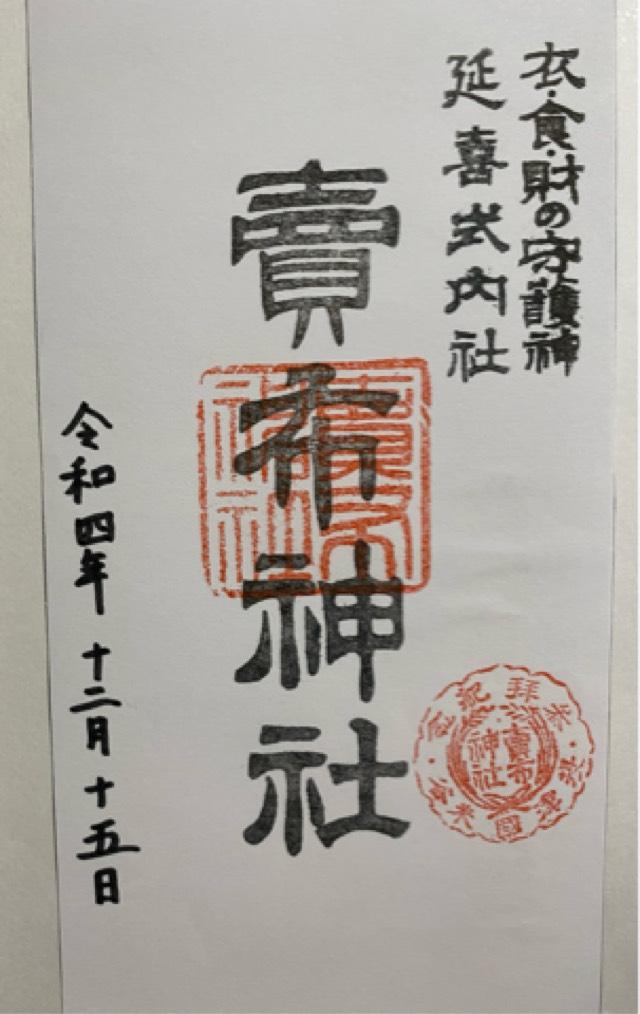 衣・食・財の守護神
延喜式内社
賣布神社
令和四年 十二月 十五日
参拝記念
賣布
神社